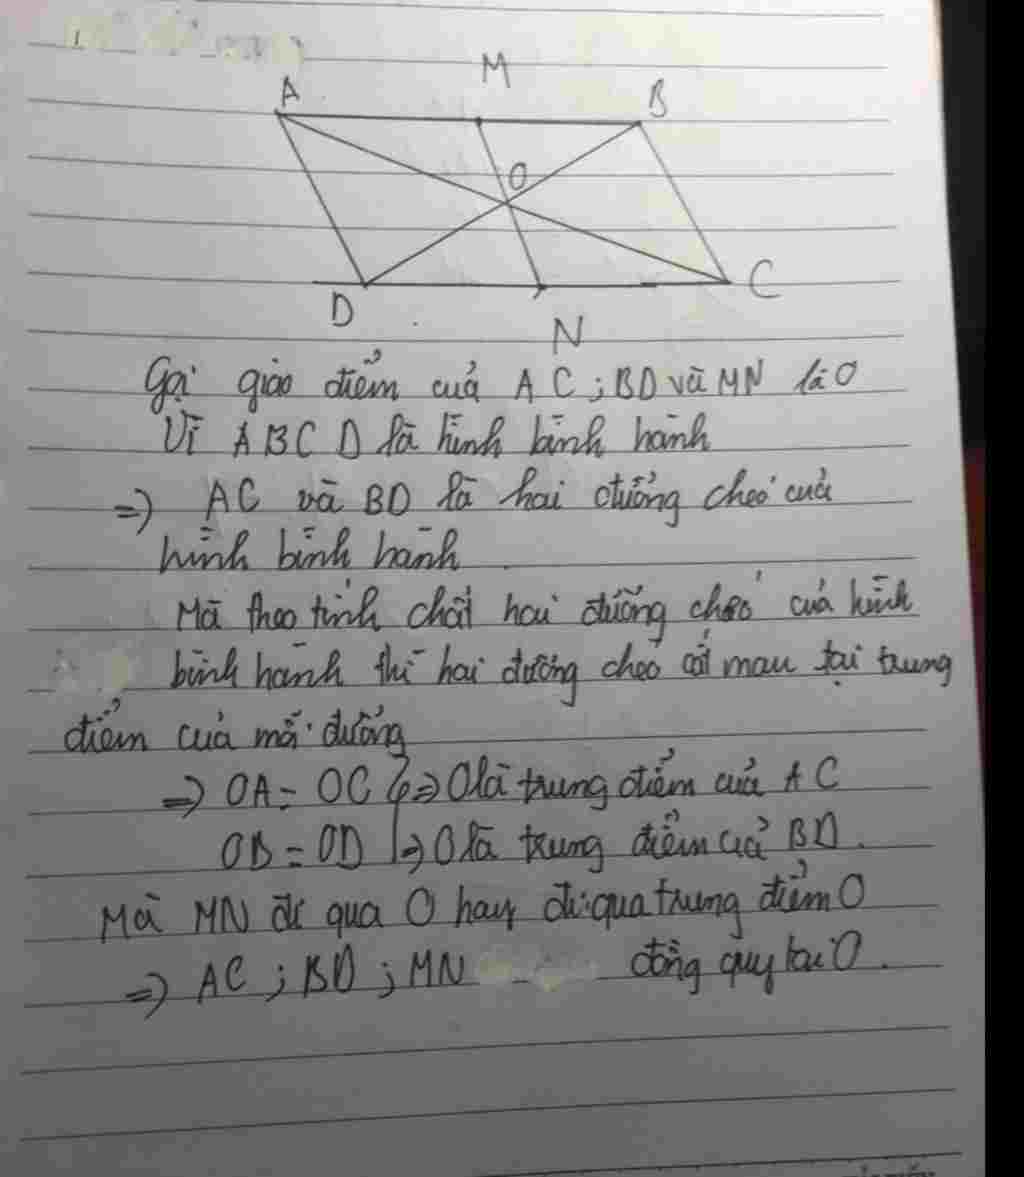 A
M
B
O
D
N
C
Gọi giao điểm của AC; BD và MN là O
Vì ABCD là hình bình hành
=> AC và BD là hai đường chéo của
hình bình hành
Mà theo tính chất hai đường chéo của hình
bình hành thì hai đường chéo cắt nhau tại trung
điểm của mỗi đường
=> OA = OC } => O là trung điểm của AC
OB = OD => O là trung điểm của BD.
Mà MN đi qua O hay đi qua trung điểm O
=> AC; BD; MN đồng quy tại O.